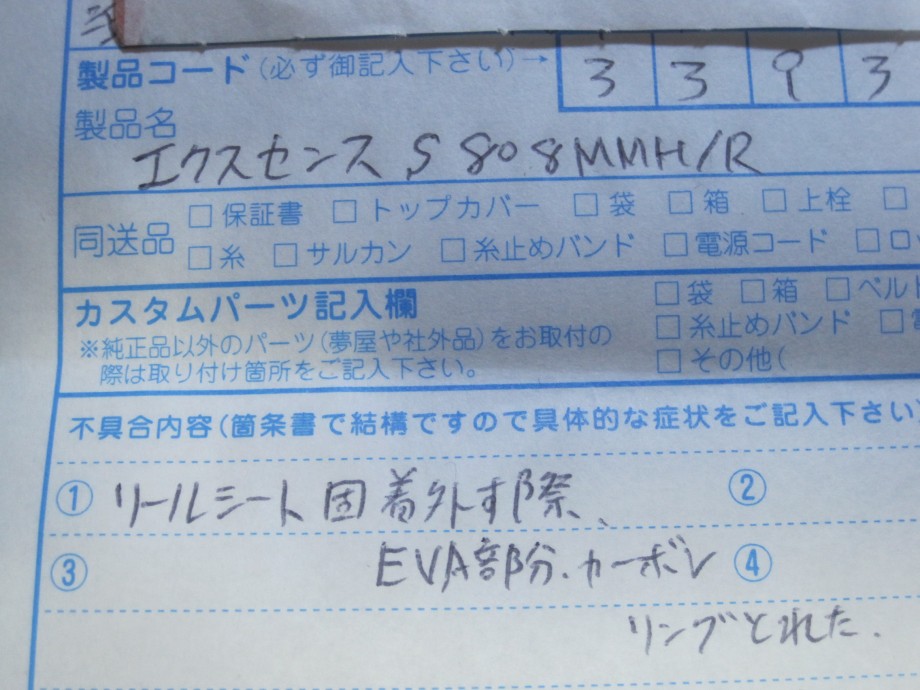 製品コード(必ず御記入下さい)→ 3 3 9 3
製品名
エクスセンス S 808MMH/R
同送品 □保証書 □トップカバー □袋 □箱 □上栓 □
□糸 □サルカン □糸止めバンド □電源コード □ロッ
カスタムパーツ記入欄 □袋 □箱 □ベルト
※純正品以外のパーツ(夢屋や社外品)をお取付の □糸止めバンド □
際は取り付け箇所をご記入下さい。 □その他(
不具合内容(箇条書で結構ですので具体的な症状をご記入下さい)
① リールシート固着外す際、 ②
③ EVA部分.カーボン ④
リングとれた.